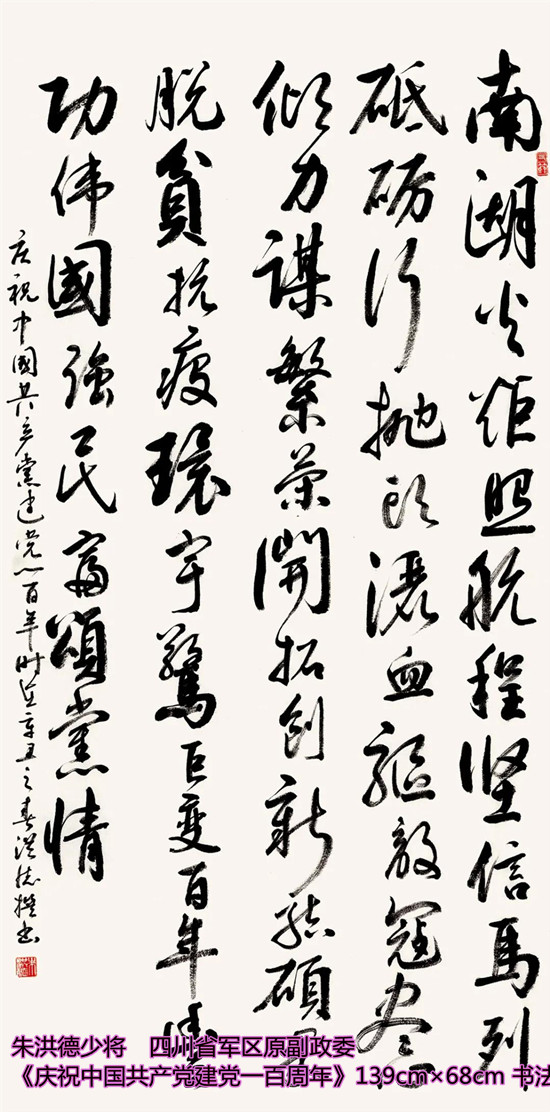 南湖火炬照航程坚信馬列
砥砺行抛头灑血驅敵寇
倾力謀繁荣開拓創新結碩
脱貧抗疫環宇驚巨變百年
功偉國强民富頌黨情
庆祝中國共产黨建党一百年时在辛丑之春洪德撰书
朱洪德少将 四川省军区原副政委
《庆祝中国共产党建党一百周年》139cm×68cm 书法